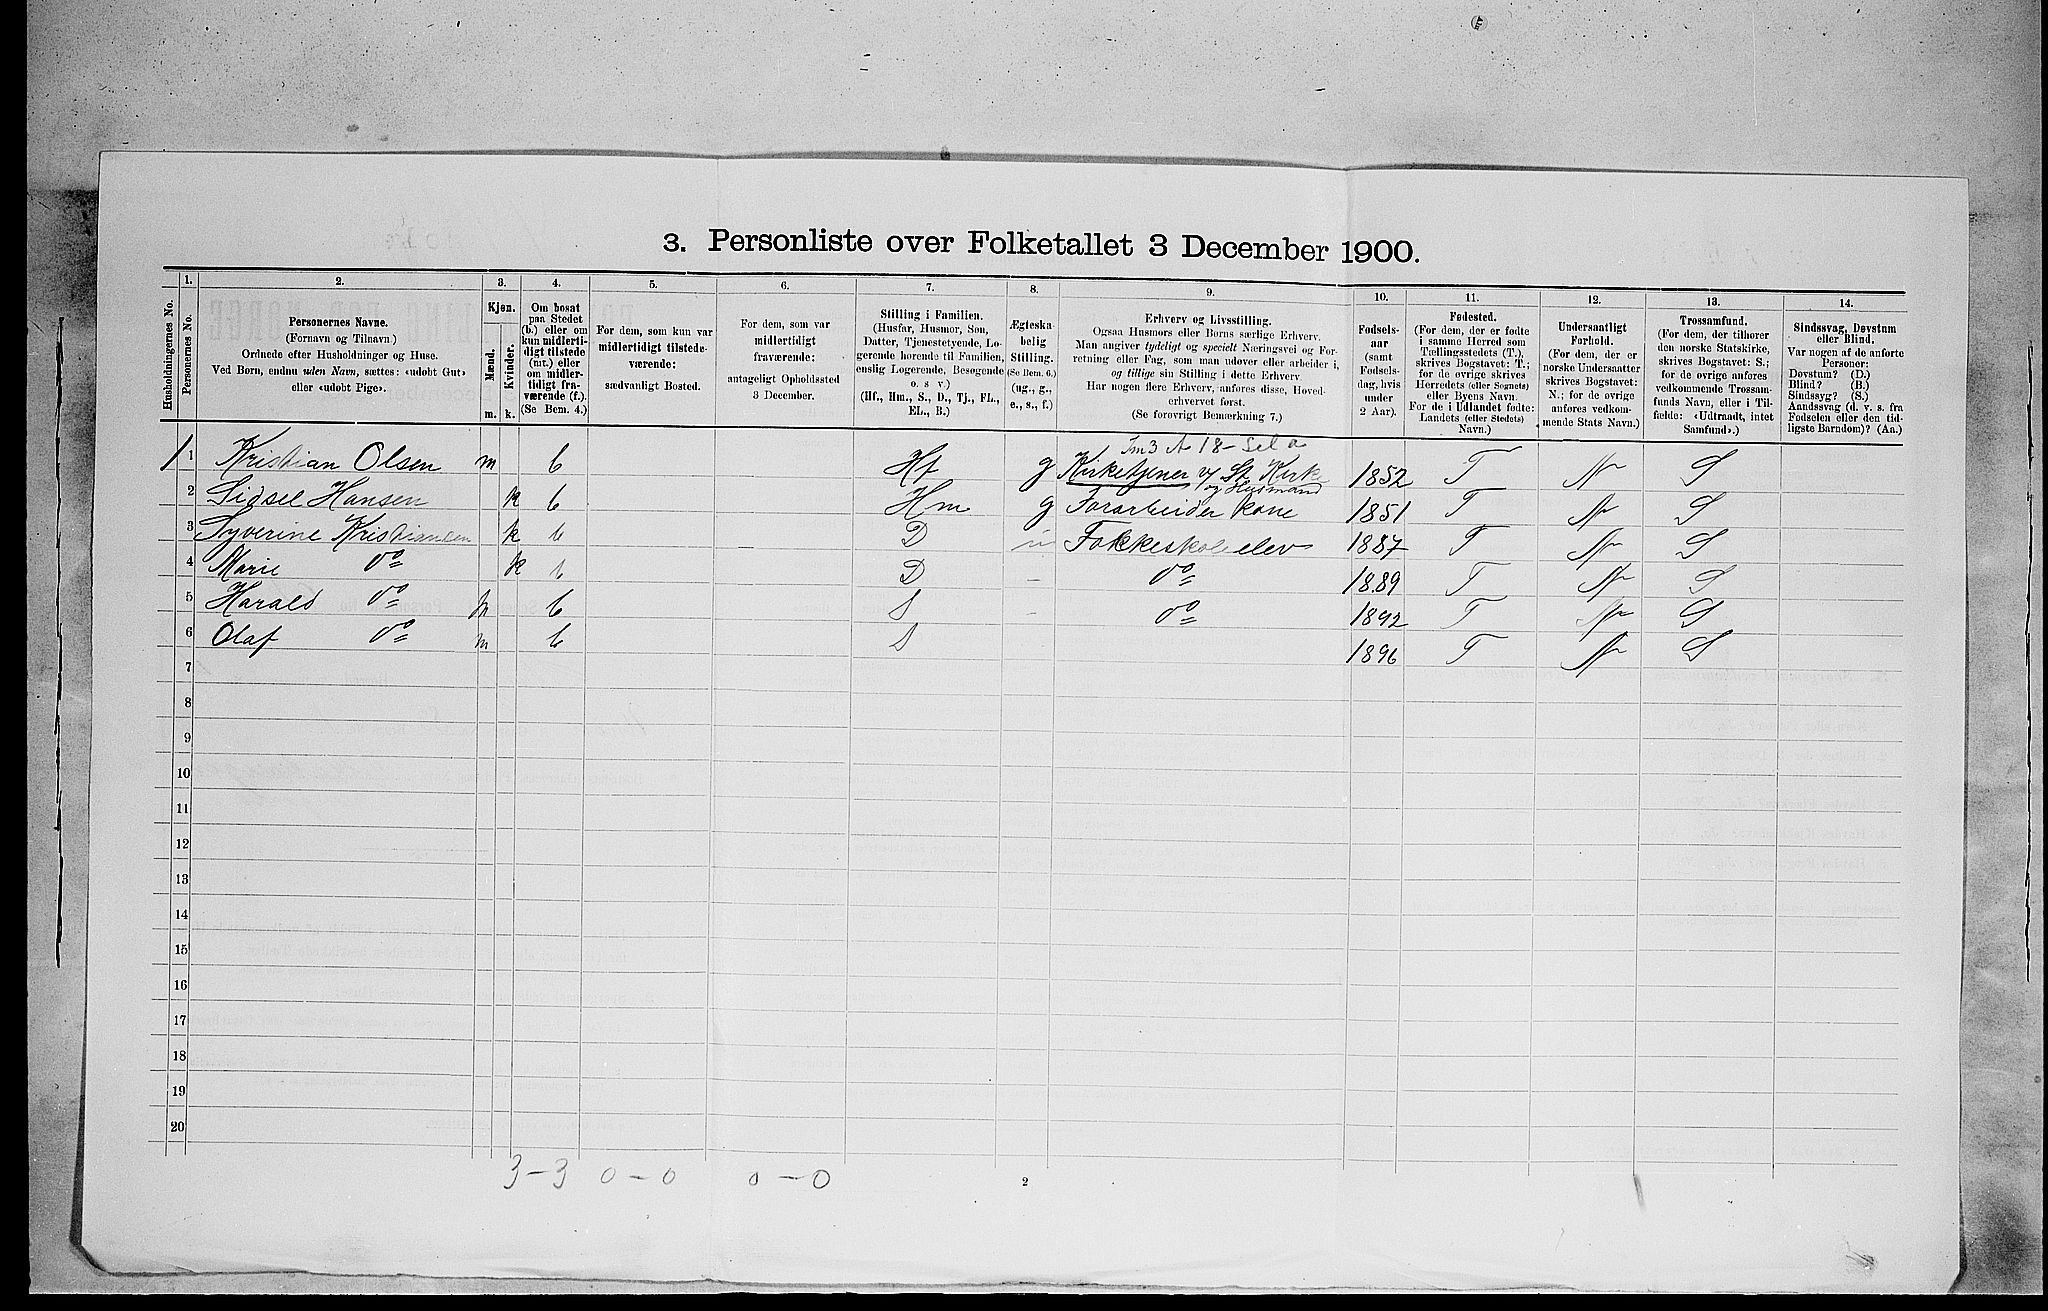 3. Personliste over Folketallet 3 December 1900.
Husholdningernes No.
1.
Personernes No.
2.
Personernes Navne.
(Fornavn og Tilnavn.)
Ordnede efter Husholdninger og Huse.
Ved Børn, endnu uden Navn, sættes: «udøbt Gut»
eller «udøbt Pige».
3.
Kjøn.
Mænd.
Kvinder.
m.
k.
4.
Om bosat
paa Stedet
(b.) eller om
kun midlerti-
digt tilstede
(mt.) eller
om midler-
tidigt fra-
værende (f.).
(Se Bem. 4.)
5.
For dem, som kun var
midlertidigt tilstede-
værende:
sædvanligt Bosted.
6.
For dem, som var
midlertidigt
fraværende:
antageligt Opholdssted
3 December.
7.
Stilling i Familien.
(Husfar, Husmor, Søn,
Datter, Tjenestetyende, Lo-
gerende hørende til Familien,
enslig Logerende, Besøgende
o. s. v.)
(Hf., Hm., S., D., Tj., FL.,
EL., B.)
8.
Ægteska-
belig
Stilling.
(Se Bem. 6.)
(ug., g.,
e., s., f.)
9.
Erhverv og Livsstilling.
Ogsaa Husmors eller Børns særlige Erhverv.
Man angiver tydeligt og specielt Næringsvei og For-
retning eller Fag, som man udøver eller arbeider i,
og tillige sin Stilling i dette Erhverv.
Har nogen flere Erhverv, anføres disse, Hoved-
erhvervet først.
(Se forøvrigt Bemærkning 7.)
10.
Fødsels-
aar
(samt
Fødsels-
dag, hvis
under
2 Aar).
11.
Fødested.
(For dem, der er fødte
i samme Herred som
Tællingsstedets (T.),
skrives Bogstavet: T.;
for de øvrige skrives
Herredets (eller Sognets)
eller Byens Navn.
For de i Udlandet fødte:
Landets (eller Stedets)
Navn.)
12.
Undersaatligt
Forhold.
(For dem, der er
norske Undersaatter
skrives Bogstavet:
N.; for de øvrige
anføres vedkom-
mende Stats Navn.)
13.
Trossamfund.
(For dem, der tilhører
den norske Statskirke,
skrives Bogstavet: S.;
for de øvrige anføres
vedkommende Trossam-
funds Navn, eller i Til-
fælde: «Udtraadt, intet
Samfund».)
14.
Sindssvag, Døvstum
eller Blind.
Var nogen af de anførte
Personer:
Døvstum? (D.)
Blind? (B.)
Sindssyg? (S.)
Aandssvag (d. v. s. fra
Fødselen eller den tid-
ligste Barndom)? (Aa.)
1 1 Kristian Olsen m b Hf g Kirketjener v/ St. Kirk og Husmand 1852 T N S
2 Sidsel Hansen k b Hm g Forarbeider kone 1851 T N S
3 Syverine Kristiansen k b D Folkeskoleelev 1887 T N S
4 Marie do k b D – do 1889 T N S
5 Harald do m b S – do 1892 T N S
6 Olaf do m b S 1896 T N S
7
8
9
10
11
12
13
14
15
16
17
18
19
20
3 – 3 0 – 0 0 – 0
2